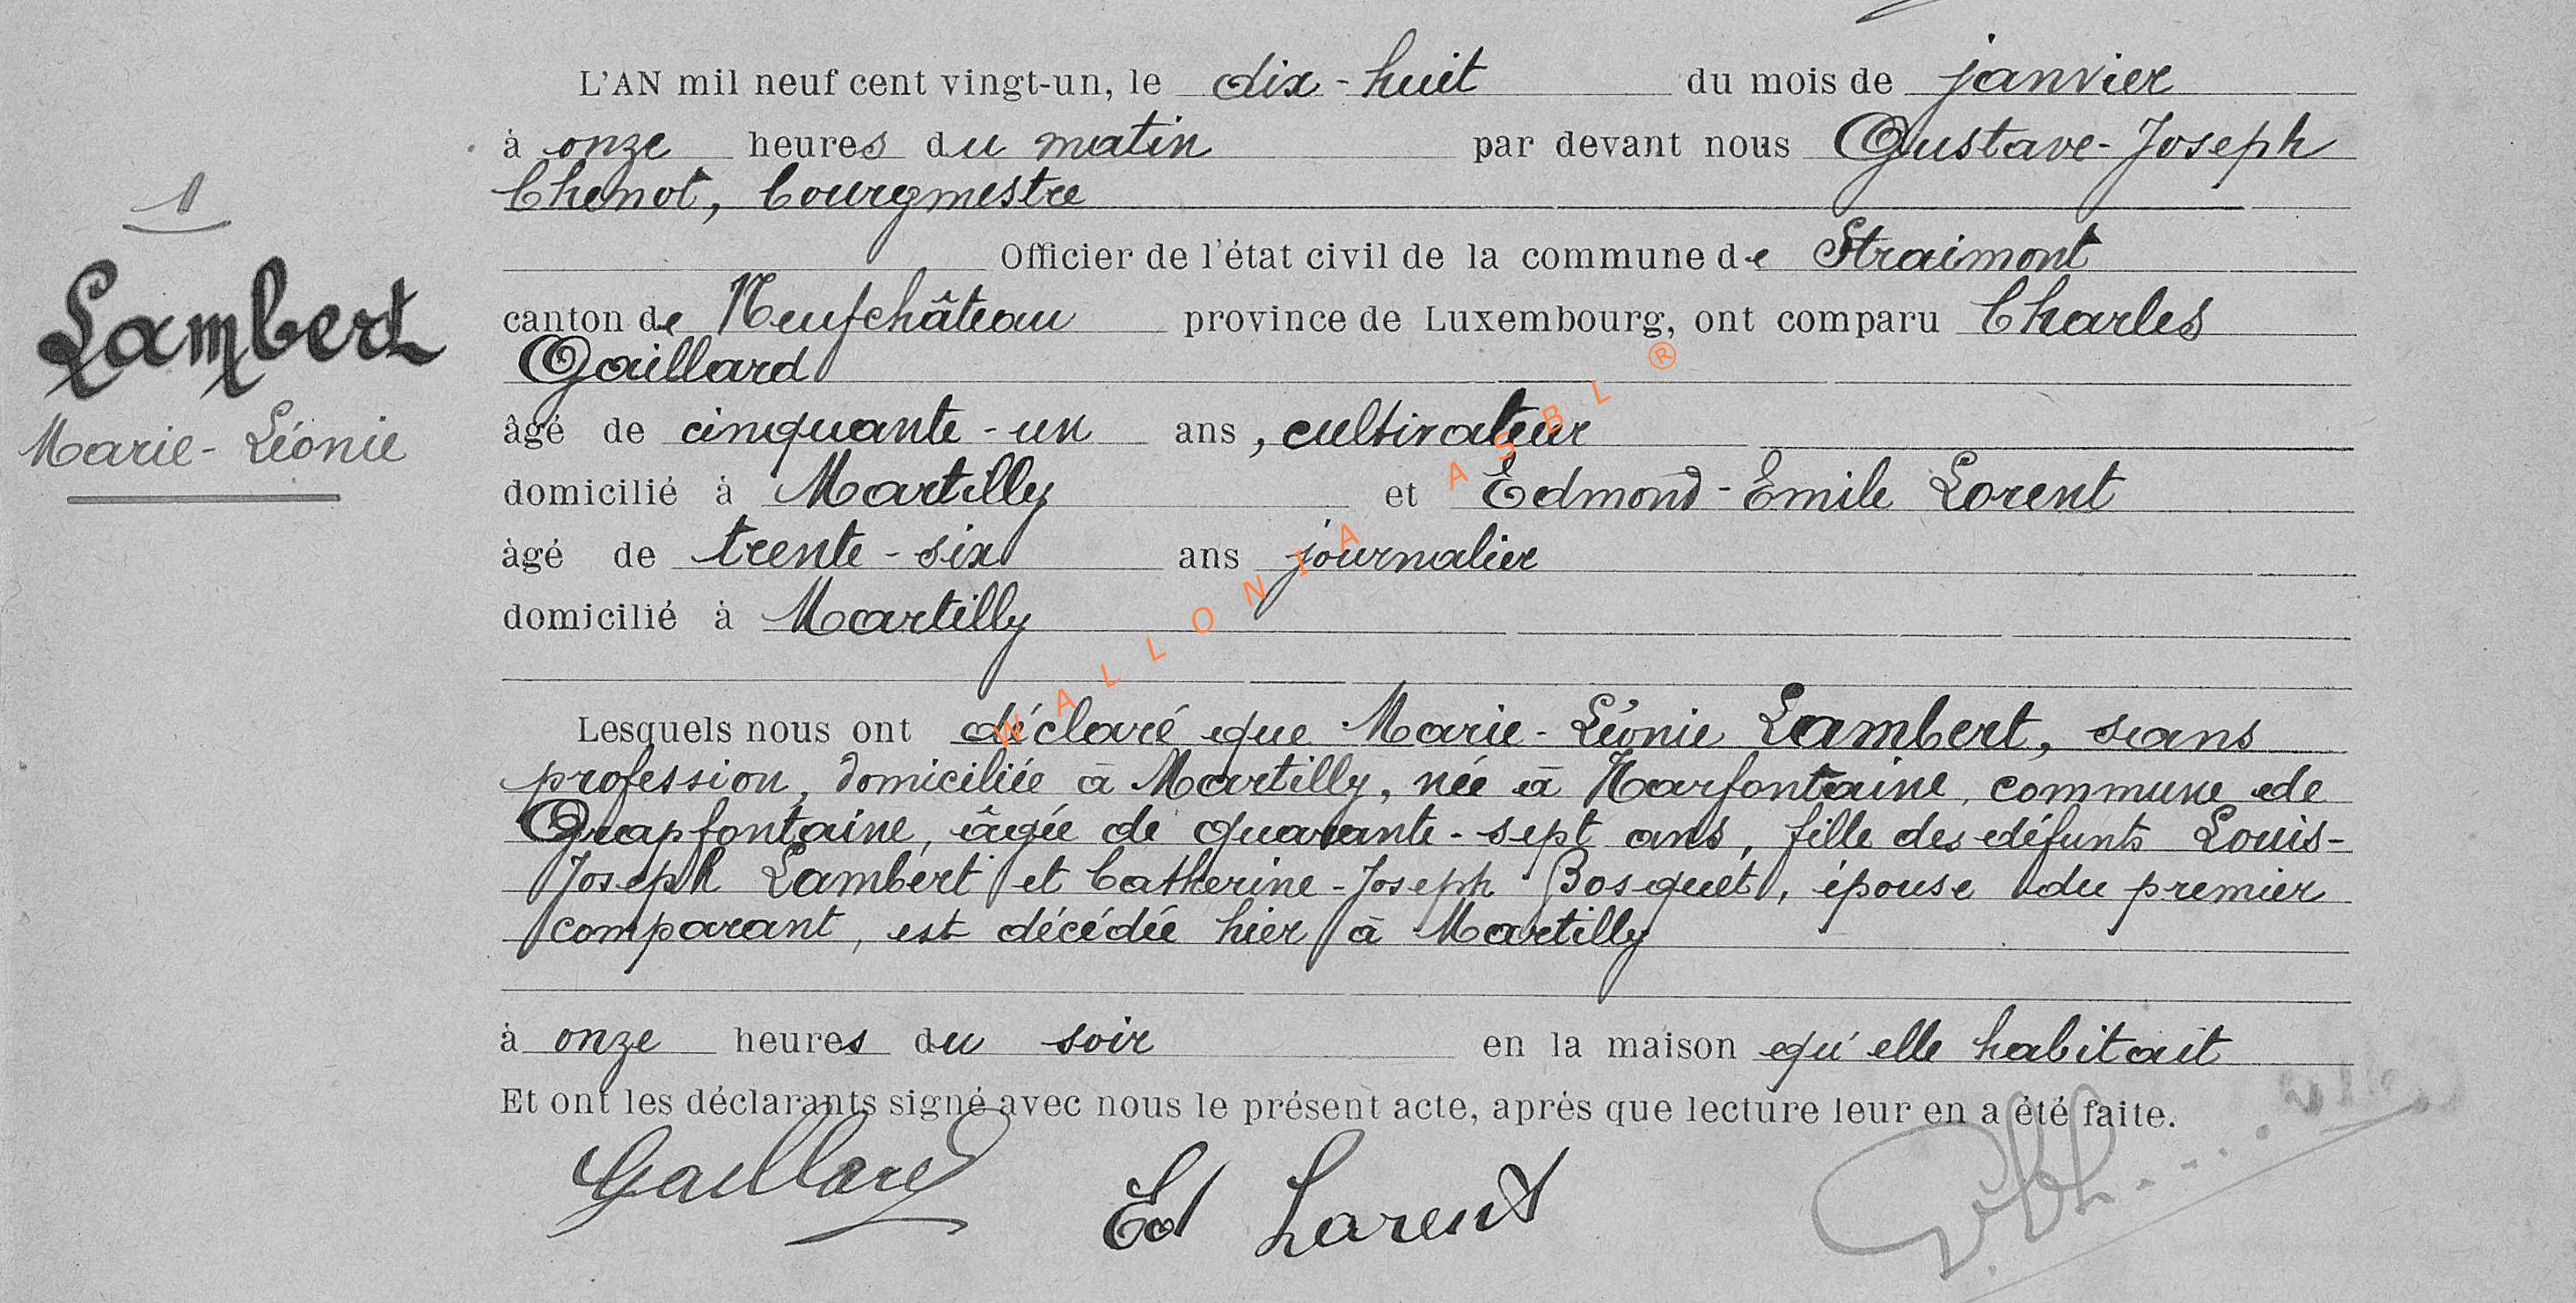 L'AN mil neuf cent vingt-un, le dix-huit du mois de janvier
à onze heures du matin par devant nous Gustave-Joseph
Chenot, bourgmestre
1
Officier de l'état civil de la commune de Straimont
Lambert
canton de Neufchâteau province de Luxembourg, ont comparu Charles
Gaillard
Marie-Léonie
âgé de cinquante-un ans, cultivateur
domicilié à Martilly et Edmond-Emile Lorent
âgé de trente-six ans journalier
domicilié à Martilly
WALLONIA ASBL ®
Lesquels nous ont déclaré que Marie-Léonie Lambert, sans
profession, domiciliée à Martilly, née à Harfontaine, commune de
Grapfontaine, âgée de quarante-sept ans, fille des défunts Louis-
Joseph Lambert et Catherine-Joseph Bosquet, épouse du premier
comparant, est décédée hier à Martilly
à onze heures du soir en la maison qu'elle habitait
Et ont les déclarants signé avec nous le présent acte, après que lecture leur en a été faite.
Gaillard Ed Lorent